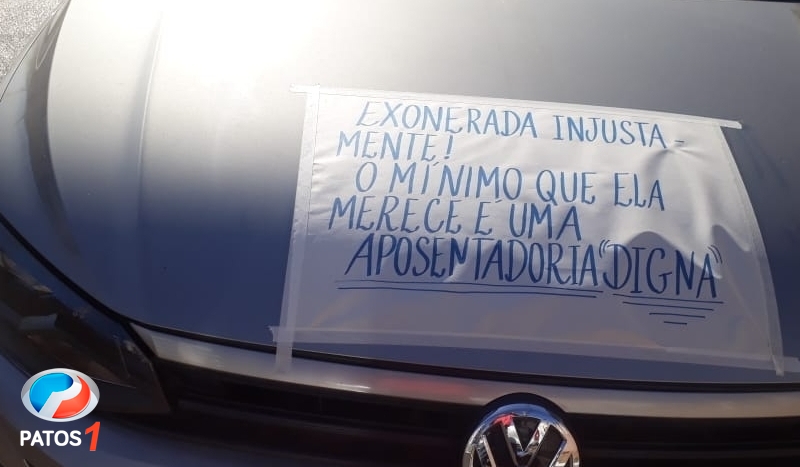 EXONERADA INJUSTA-
MENTE!
O MÍNIMO QUE ELA
MERECE É UMA
APOSENTADORIA "DIGNA"
PATOS 1